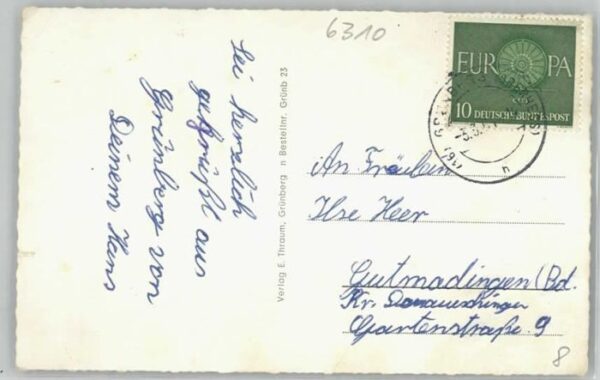 6310
Sei herzlich
gegrüßt aus
Grünberg von
Deinem Hans
Verlag E. Thraum, Grünberg n Bestellnr. Grünb 23
EUROPA
10 DEUTSCHE BUNDESPOST
An Fräulein
Ilse Heer
Gutmadingen (Bd.
Kr. Donaueschingen
Gartenstraße 9
8